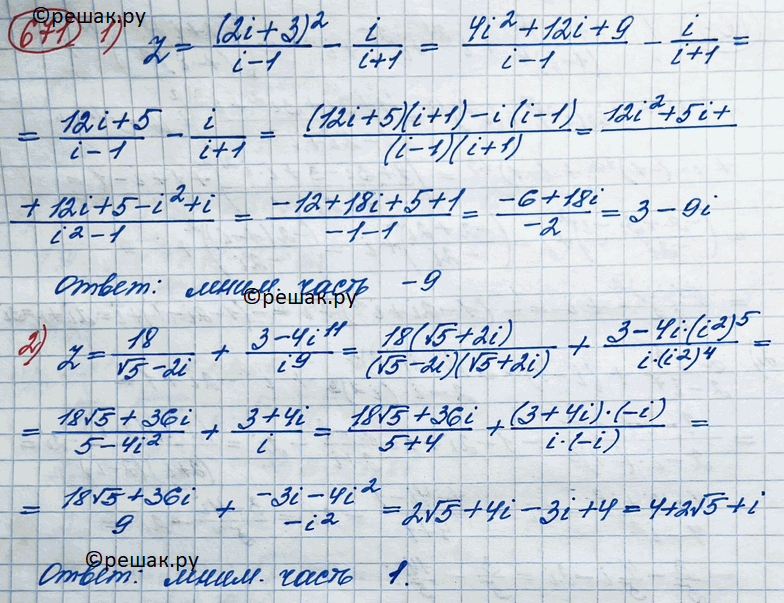 ©решак.ру
671 1) z = (2i+3)²/(i-1) - i/(i+1) = (4i²+12i+9)/(i-1) - i/(i+1) =
= (12i+5)/(i-1) - i/(i+1) = ((12i+5)(i+1)-i(i-1))/((i-1)(i+1)) = 12i²+5i+
+12i+5-i²+i/(i²-1) = (-12+18i+5+1)/(-1-1) = (-6+18i)/(-2) = 3-9i
Ответ: мним. часть -9
©решак.ру
2) z = 18/(√5-2i) + (3-4i¹¹)/i⁹ = 18(√5+2i)/((√5-2i)(√5+2i)) + (3-4i·(i²)⁵)/(i·(i²)⁴) =
= (18√5+36i)/(5-4i²) + (3+4i)/i = (18√5+36i)/(5+4) + ((3+4i)·(-i))/(i·(-i)) =
= (18√5+36i)/9 + (-3i-4i²)/(-i²) = 2√5+4i-3i+4 = 4+2√5+i
©решак.ру
Ответ: мним. часть 1.